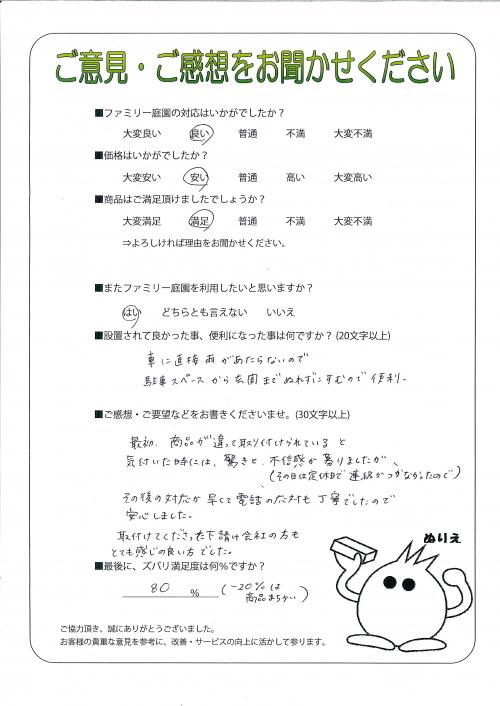 ご意見・ご感想をお聞かせください
■ファミリー庭園の対応はいかがでしたか？
大変良い 良い 普通 不満 大変不満
■価格はいかがでしたか？
大変安い 安い 普通 高い 大変高い
■商品はご満足頂けましたでしょうか？
大変満足 満足 普通 不満 大変不満
⇒よろしければ理由をお聞かせください。
■またファミリー庭園を利用したいと思いますか？
はい どちらとも言えない いいえ
■設置されて良かった事、便利になった事は何ですか？(20文字以上)
車に直接雨があたらないので
駐車スペースから玄関までぬれずにすむので便利。
■ご感想・ご要望などをお書きくださいませ。(30文字以上)
最初、商品が違って取り付けられていると
気付いた時には、驚きと、不信感が募りましたが、
(その日は定休日で連絡がつかなかったので)
その後の対応が早くて電話の応対も丁寧でしたので
安心しました。
取付けてくださった下請け会社の方も
とても感じの良い方でした。
■最後に、ズバリ満足度は何％ですか？
80 ％ (-20%は
商品まちがい)
ぬりえ
ご協力頂き、誠にありがとうございました。
お客様の貴重な意見を参考に、改善・サービスの向上に活かして参ります。